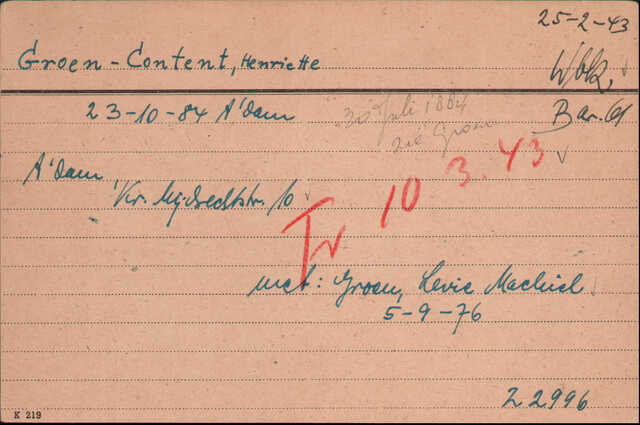 25-2-43
Groen-Content, Henriette
Wbk,
23-10-84 A'dam
30 Juli 1884
zie Groen
Bar. 61
10 3. 43
A'dam
Kr. Mijdrechtstr. 10
Tr
met: Groen, Levie Machiel
5-9-76
Z 2996
K 219